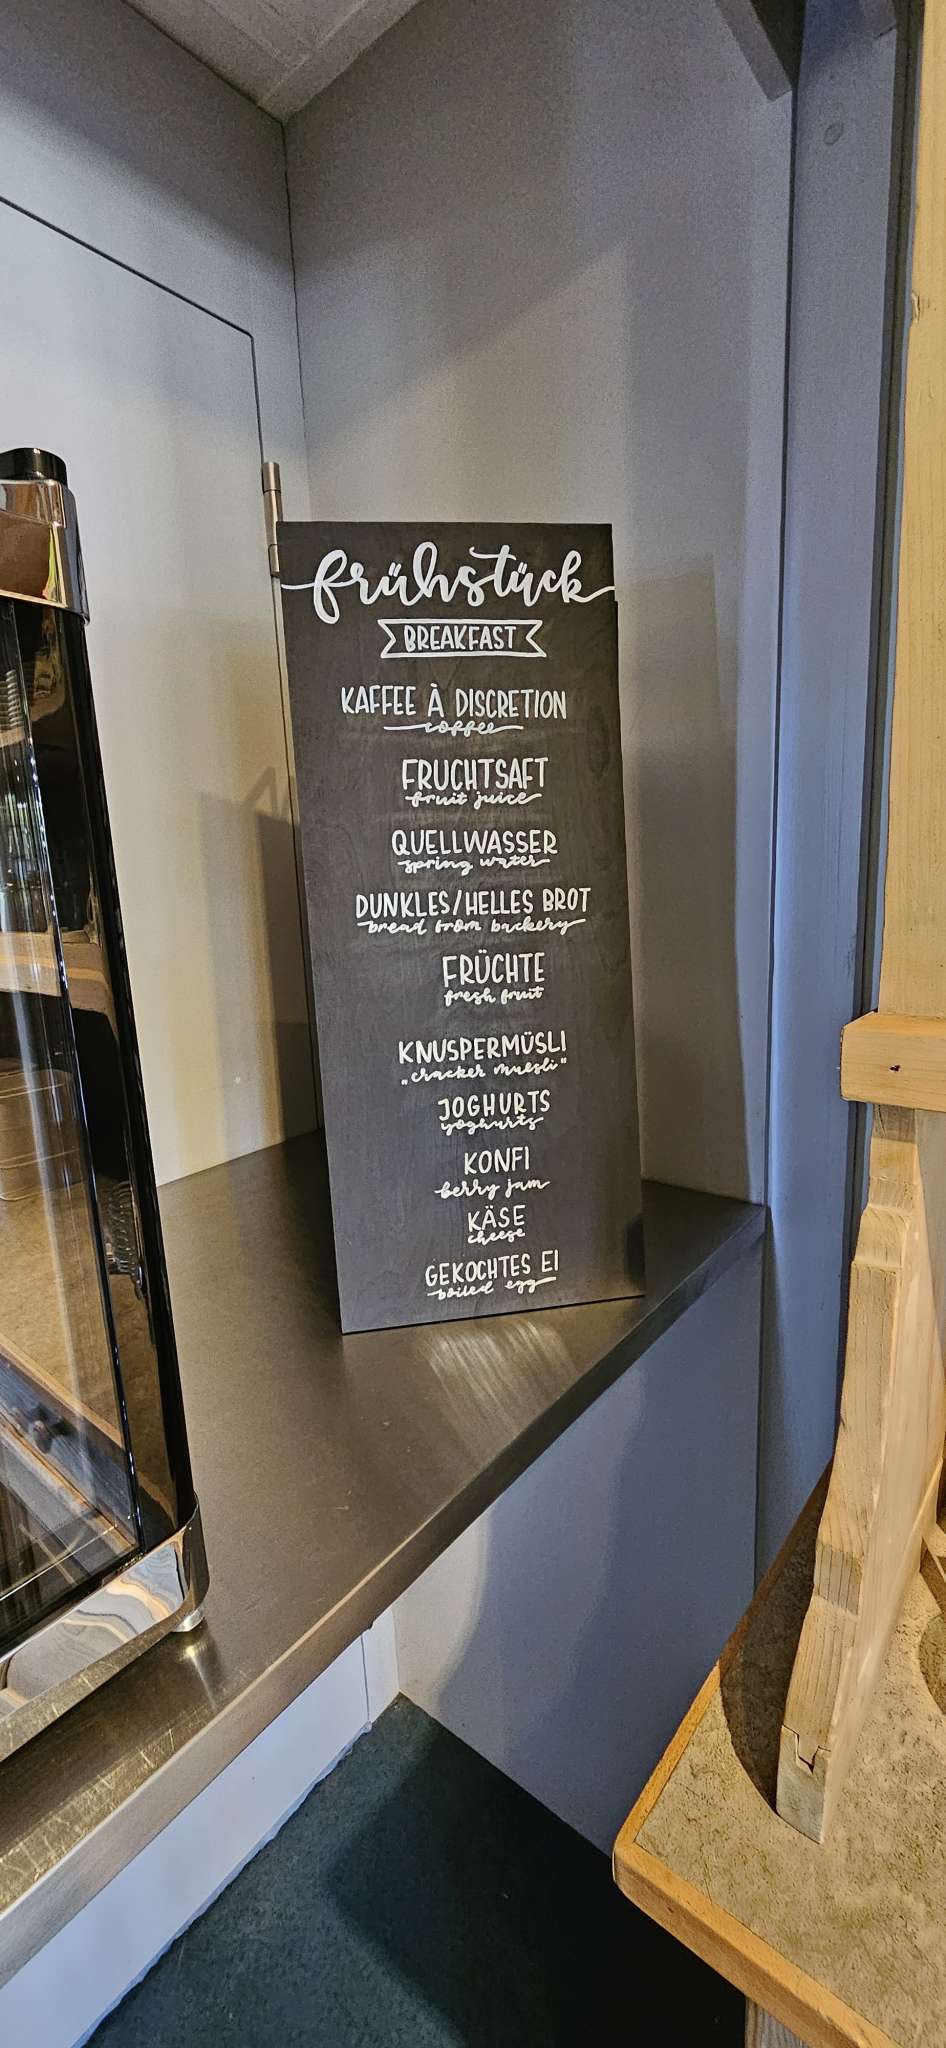 frühstück
BREAKFAST
KAFFEE À DISCRETION
coffee
FRUCHTSAFT
fruit juice
QUELLWASSER
spring water
DUNKLES/HELLES BROT
bread from backery
FRÜCHTE
fresh fruit
KNUSPERMÜSLI
„cracker muesli"
JOGHURTS
yoghurts
KONFI
berry jam
KÄSE
cheese
GEKOCHTES EI
boiled egg